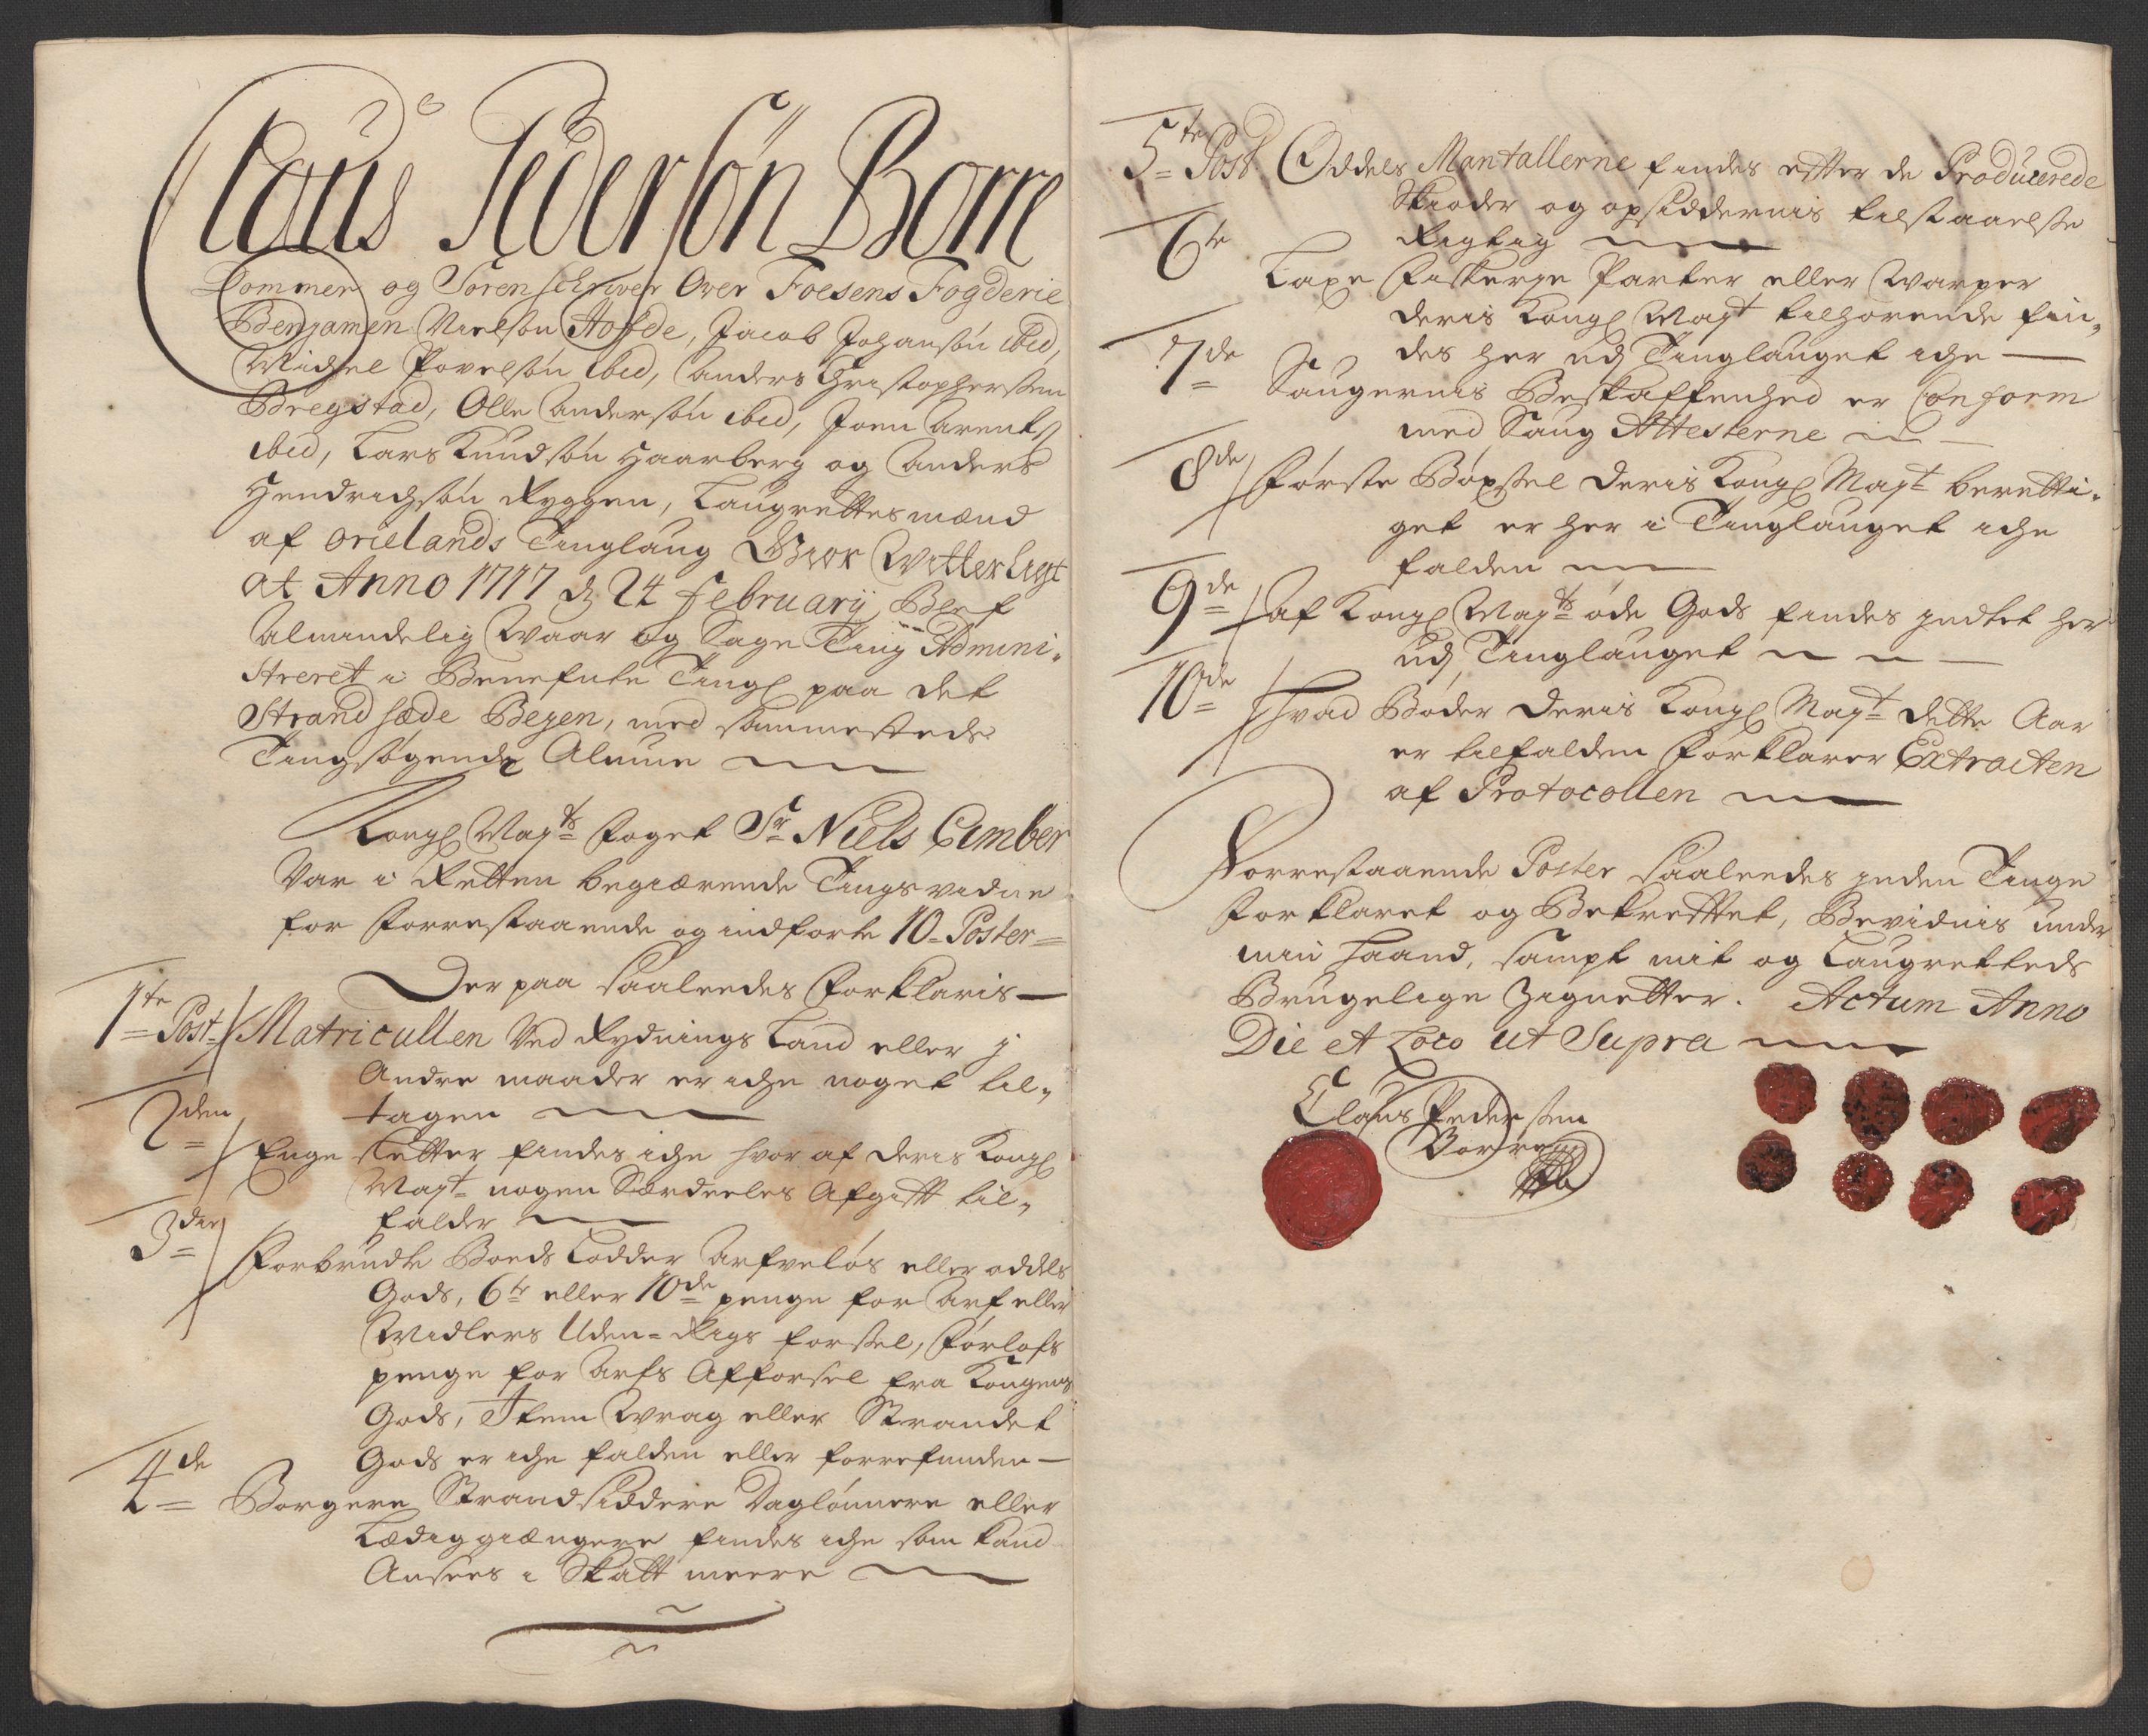 Claus Pedersøn Borre
Dommer og Sorenschriver Over Foesens Fogderie
Benjamen Nielsøn Hofde, Jacob Johansøn ibid,
Michel Povelsøn ibid, Anders Christophersen
Bregstad, Olle Andersøn ibid, Joen Arents
ibid, Lars Knudsøn Haarberg og Anders
Hendrichsøn Ryggen, Laugrettes mænd
af Ørlelands Tinglaug Giør Witterligt
at Anno 1717 d 24 February, Blef
Almindelig Waar og Sage Ting Admini-
streret i Benefnte Tingl paa det
Strandsæde Bejen, med sammesteds
Tingsøgende Almue
Kongl Mayts Foget Sr Niels Cimber
Var i Retten begiærende Tingsvidne
for Forrestaaende og indførte 10 Poster
Der paa saaleedes Forklaris
1te Post Matricullen Ved Rydnings Land eller j
Andre maader er iche noget til-
tagen
2den Enge Sletter findes iche hvor af deris Kongl
Mayt nogen Særdeeles Afgift til-
falder
3die Forbrudte Boeds Lodder Arfveløs eller oddels
Gods, 6te eller 10de penge for Arf eller
Midlers Uden-Rigs førsel, Førlofs
penge for Arfs Afførsel fra Kongens
Gods, Item Wrag eller Strandet
Gods er iche falden eller forrefunden
4de Borgere Strandsiddere Daglønnere eller
Lædiggiængere findes iche som kand
Ansees i Skatt meere
5te Post Oddels Mantallerne findes efter de Producerede
Skiøder og opsiddernis tilstaaelse
Rigtig
6te Laxe Fiskerje Parter eller Warper
deris Kongl Mayt tilhørende fin-
des her udj Tinglauget iche
7de Saugernis Beskaffenhed er Conform
med Saug Attesterne
8de Første Bøxsel Deris Kongl Mayt beretti-
get er her i Tinglauget iche
falden
9de Af Kongl Mayts øde Gods findes jndtet her
udj Tinglauget
10de Hvad Bøder Deris Kongl Mayt dette Aar
er tilfalden Forklarer Extracten
af Protocollen
Forrestaaende Poster saaleedes jnden Tinge
Forklaret og Bekrefttet, Bevidnis under
min Haand, sampt mit og Laugrettets
Brugelige Zignetter. Actum Anno
Die et Loco ut Supra
Claus Pedersen
Borre